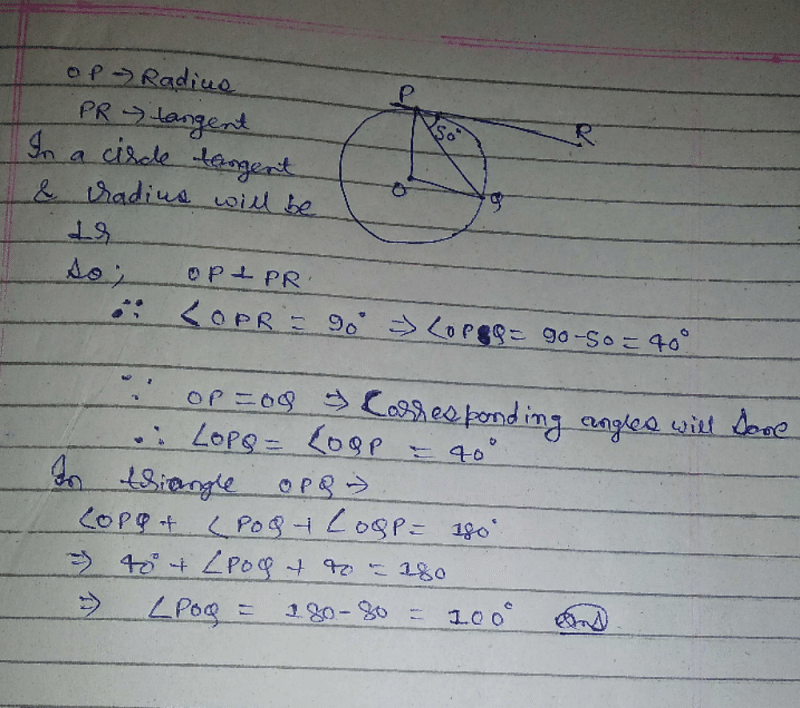 OP → Radius
PR → tangent
In a circle tangent
& radius will be
⊥r
So; OP ⊥ PR.
∴ ∠OPR = 90° ⇒ ∠OPQ = 90-50 = 40°
∵ OP = OQ ⇒ Corresponding angles will same
∴ ∠OPQ = ∠OQP = 40°
In triangle OPQ →
∠OPQ + ∠POQ + ∠OQP = 180°
⇒ 40° + ∠POQ + 40 = 180
⇒ ∠POQ = 180-80 = 100° Ans
P
50°
R
O
Q